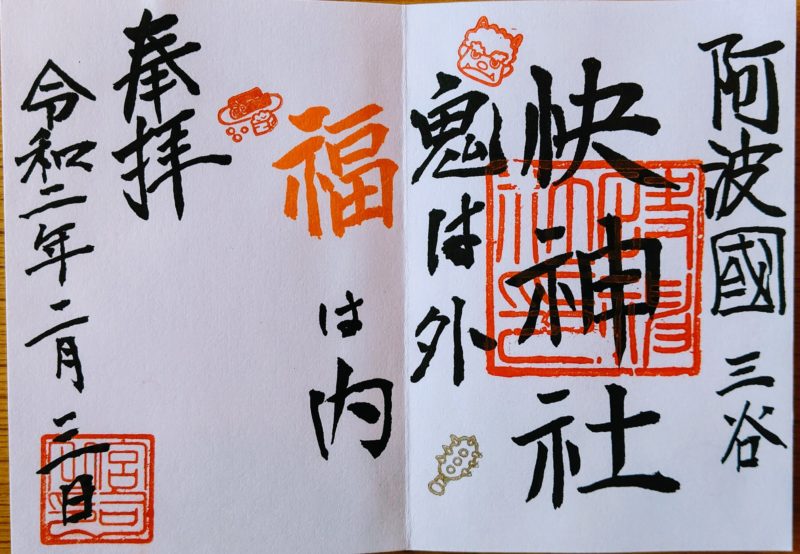 阿波國 三谷
快神社
鬼は外
福は内
奉拝
令和二年二月三日